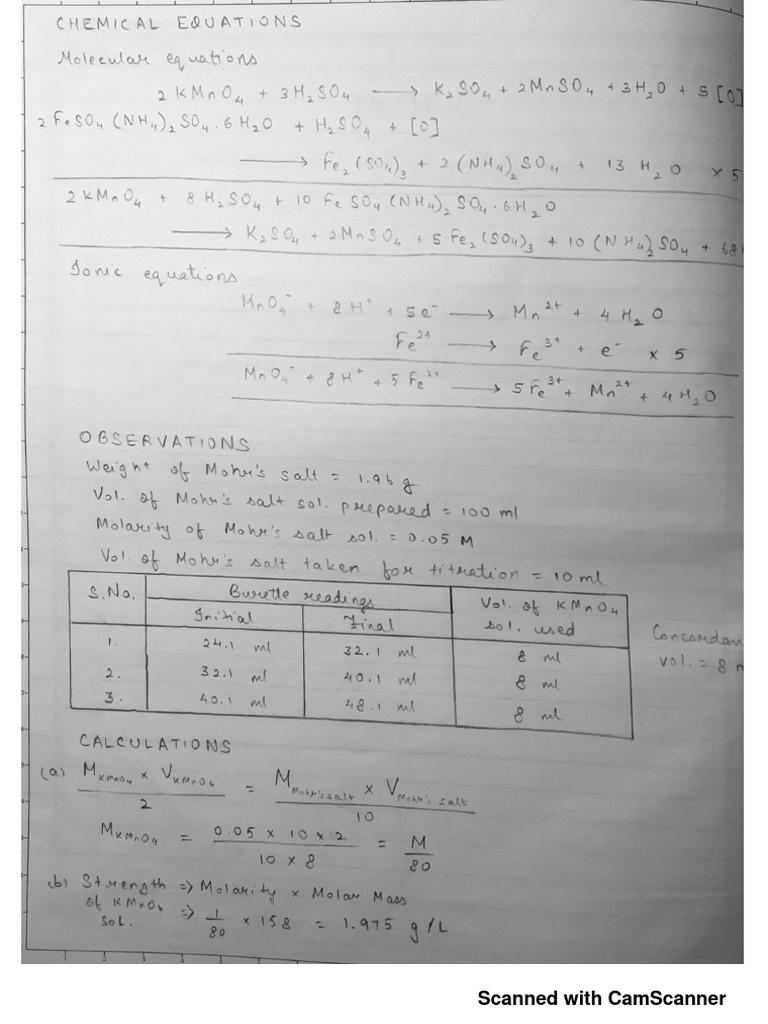 CHEMICAL EQUATIONS
Molecular equations
2 KMnO₄ + 3H₂SO₄ ⟶ K₂SO₄ + 2MnSO₄ + 3H₂O + 5 [O]
2 FeSO₄ (NH₄)₂ SO₄ . 6H₂O + H₂SO₄ + [O]
⟶ Fe₂ (SO₄)₃ + 2 (NH₄)₂ SO₄ + 13 H₂O × 5
2 KMnO₄ + 8 H₂SO₄ + 10 FeSO₄ (NH₄)₂ SO₄ . 6H₂O
⟶ K₂SO₄ + 2MnSO₄ + 5 Fe₂ (SO₄)₃ + 10 (NH₄)₂ SO₄ + 68
Ionic equations
MnO₄⁻ + 8H⁺ + 5e⁻ ⟶ Mn²⁺ + 4 H₂O
Fe²⁺ ⟶ Fe³⁺ + e⁻ × 5
MnO₄⁻ + 8H⁺ + 5 Fe²⁺ ⟶ 5 Fe³⁺ + Mn²⁺ + 4H₂O
OBSERVATIONS
Weight of Mohr's salt = 1.96 g
Vol. of Mohr's salt sol. prepared = 100 ml
Molarity of Mohr's salt sol. = 0.05 M
Vol. of Mohr's salt taken for titration = 10 ml
S.No. Burette readings Vol. of KMnO₄
Initial Final sol. used
1. 24.1 ml 32.1 ml 8 ml
2. 32.1 ml 40.1 ml 8 ml
3. 40.1 ml 48.1 ml 8 ml
Concordan
vol. = 8
CALCULATIONS
(a) M KMnO₄ × V KMnO₄ / 2 = M Mohr's salt × V Mohr's salt / 10
M KMnO₄ = 0.05 × 10 × 2 / 10 × 8 = M / 80
(b) Strength => Molarity × Molar Mass
of KMnO₄ => 1/80 × 158 = 1.975 g/L
sol.
Scanned with CamScanner